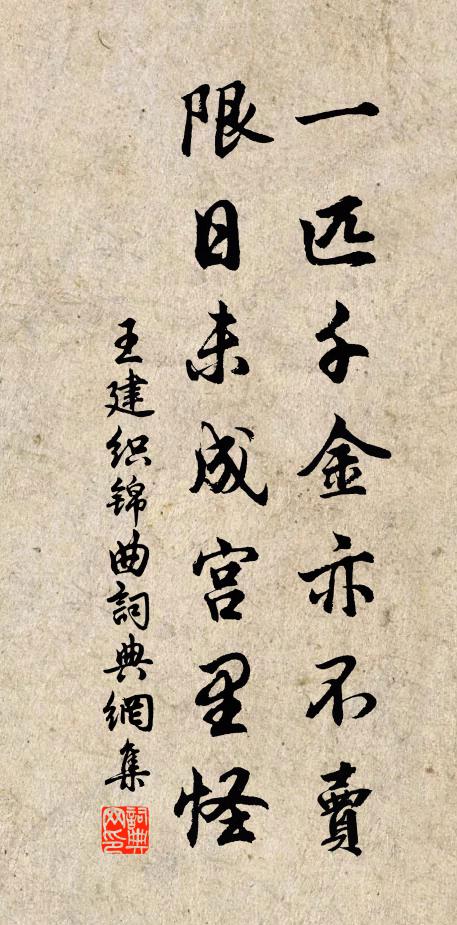 一匹千金亦不賣
限日未成宮里怪
王建织锦曲詞典網集
詞典网印